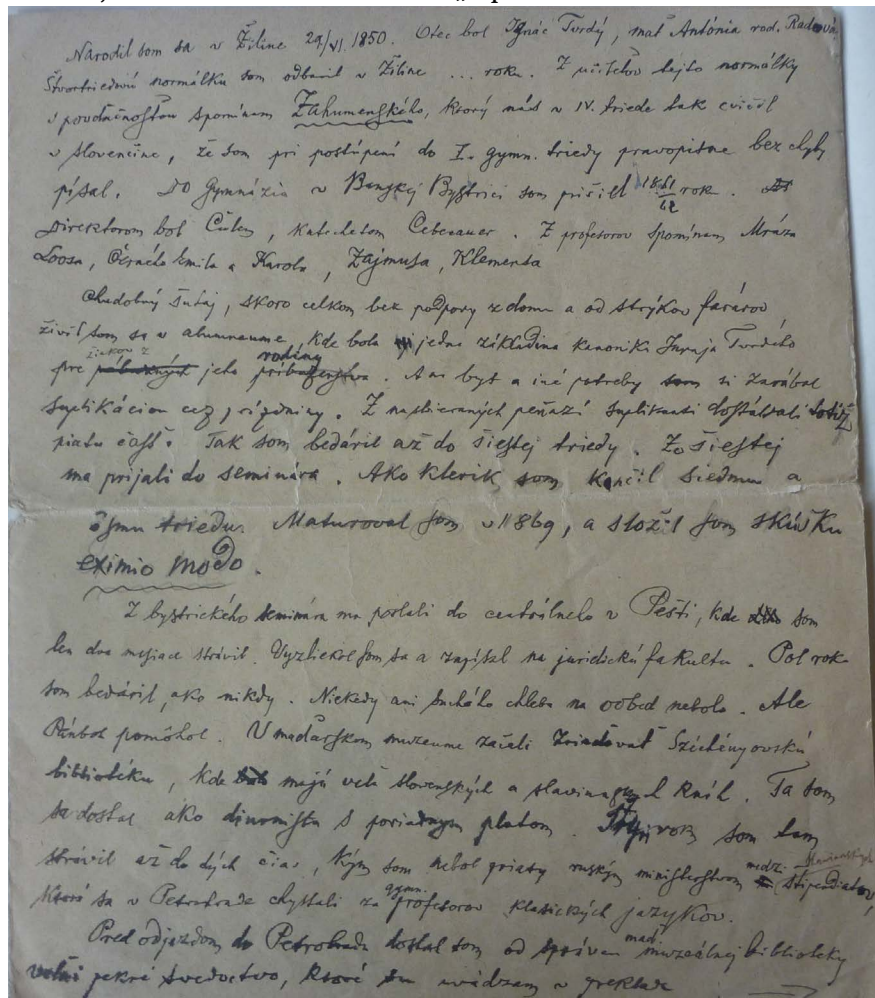 Narodil som sa v Žiline 29/VI. 1850. Otec bol Ignác Tvrdý, mať Antónia rod. Radová.
Štvortriednú normálku som odbavil v Žiline ... roku. Z učiteľov tejto normálky
s povďačnosťou spomínam Zahumenského, ktorý nás v IV. triede tak cvičil
v slovenčine, že som pri postúpení do I. gymn. triedy pravopisne bez chyby
písal. Do Gymnázia v Banskej Bystrici som prišiel 1861/62 rok.
Direktorom bol Čulen, katechetom Cebecauer. Z profesorov spomínam Mráza
Loosa, Černécha Emila a Karola, Zajmusa, Klementa
Chudobný šuhaj, skoro celkom bez podpory z domu a od strýkov farárov
živil som sa v alumneume, kde bola jedna základina kanonika Juraja Tvrdého
pre žiakov z jeho rodiny. A na byt a iné potreby som si zarábal
suplikáciou cez prázdniny. Z nasbieraných peňazí suplikanti dostávali totiž
piatu časť. Tak som bedáril až do šiestej triedy. Zo šiestej
ma prijali do seminára. Ako klerik som končil siedmu a
ôsmu triedu. Maturoval som v 1869, a složil som skúšku
eximio modo.
Z bystrického seminára ma poslali do centrálneho v Pešti, kde som
len dva mesiace strávil. Vyzliekol som sa a zapísal na juridickú fakultu. Pol roka
som bedáril, ako nikdy. Niekedy ani suchého chleba na oobed nebolo. Ale
Pánboh pomôhol. V maďarskom muzeume začali zriaďovať Széchényovskú
bibliotéku, kde majú veľa slovenských a slavinských kníh. Ta som
sa dostal ako diurnista s poriadnym platom. som tam
strávil až do tých čias, kým som nebol prijatý ruským ministerstvom medzi slovanských stipendiatov,
ktorí sa v Petrohrade chystali za gymn. profesorov klasických jazykov.
Pred odjazdom do Petrohradu dostal som od správcu maď. muzeálnej bibliotéky
veľmi pekné svedoctvo, ktoré tu uvádzam v preklade